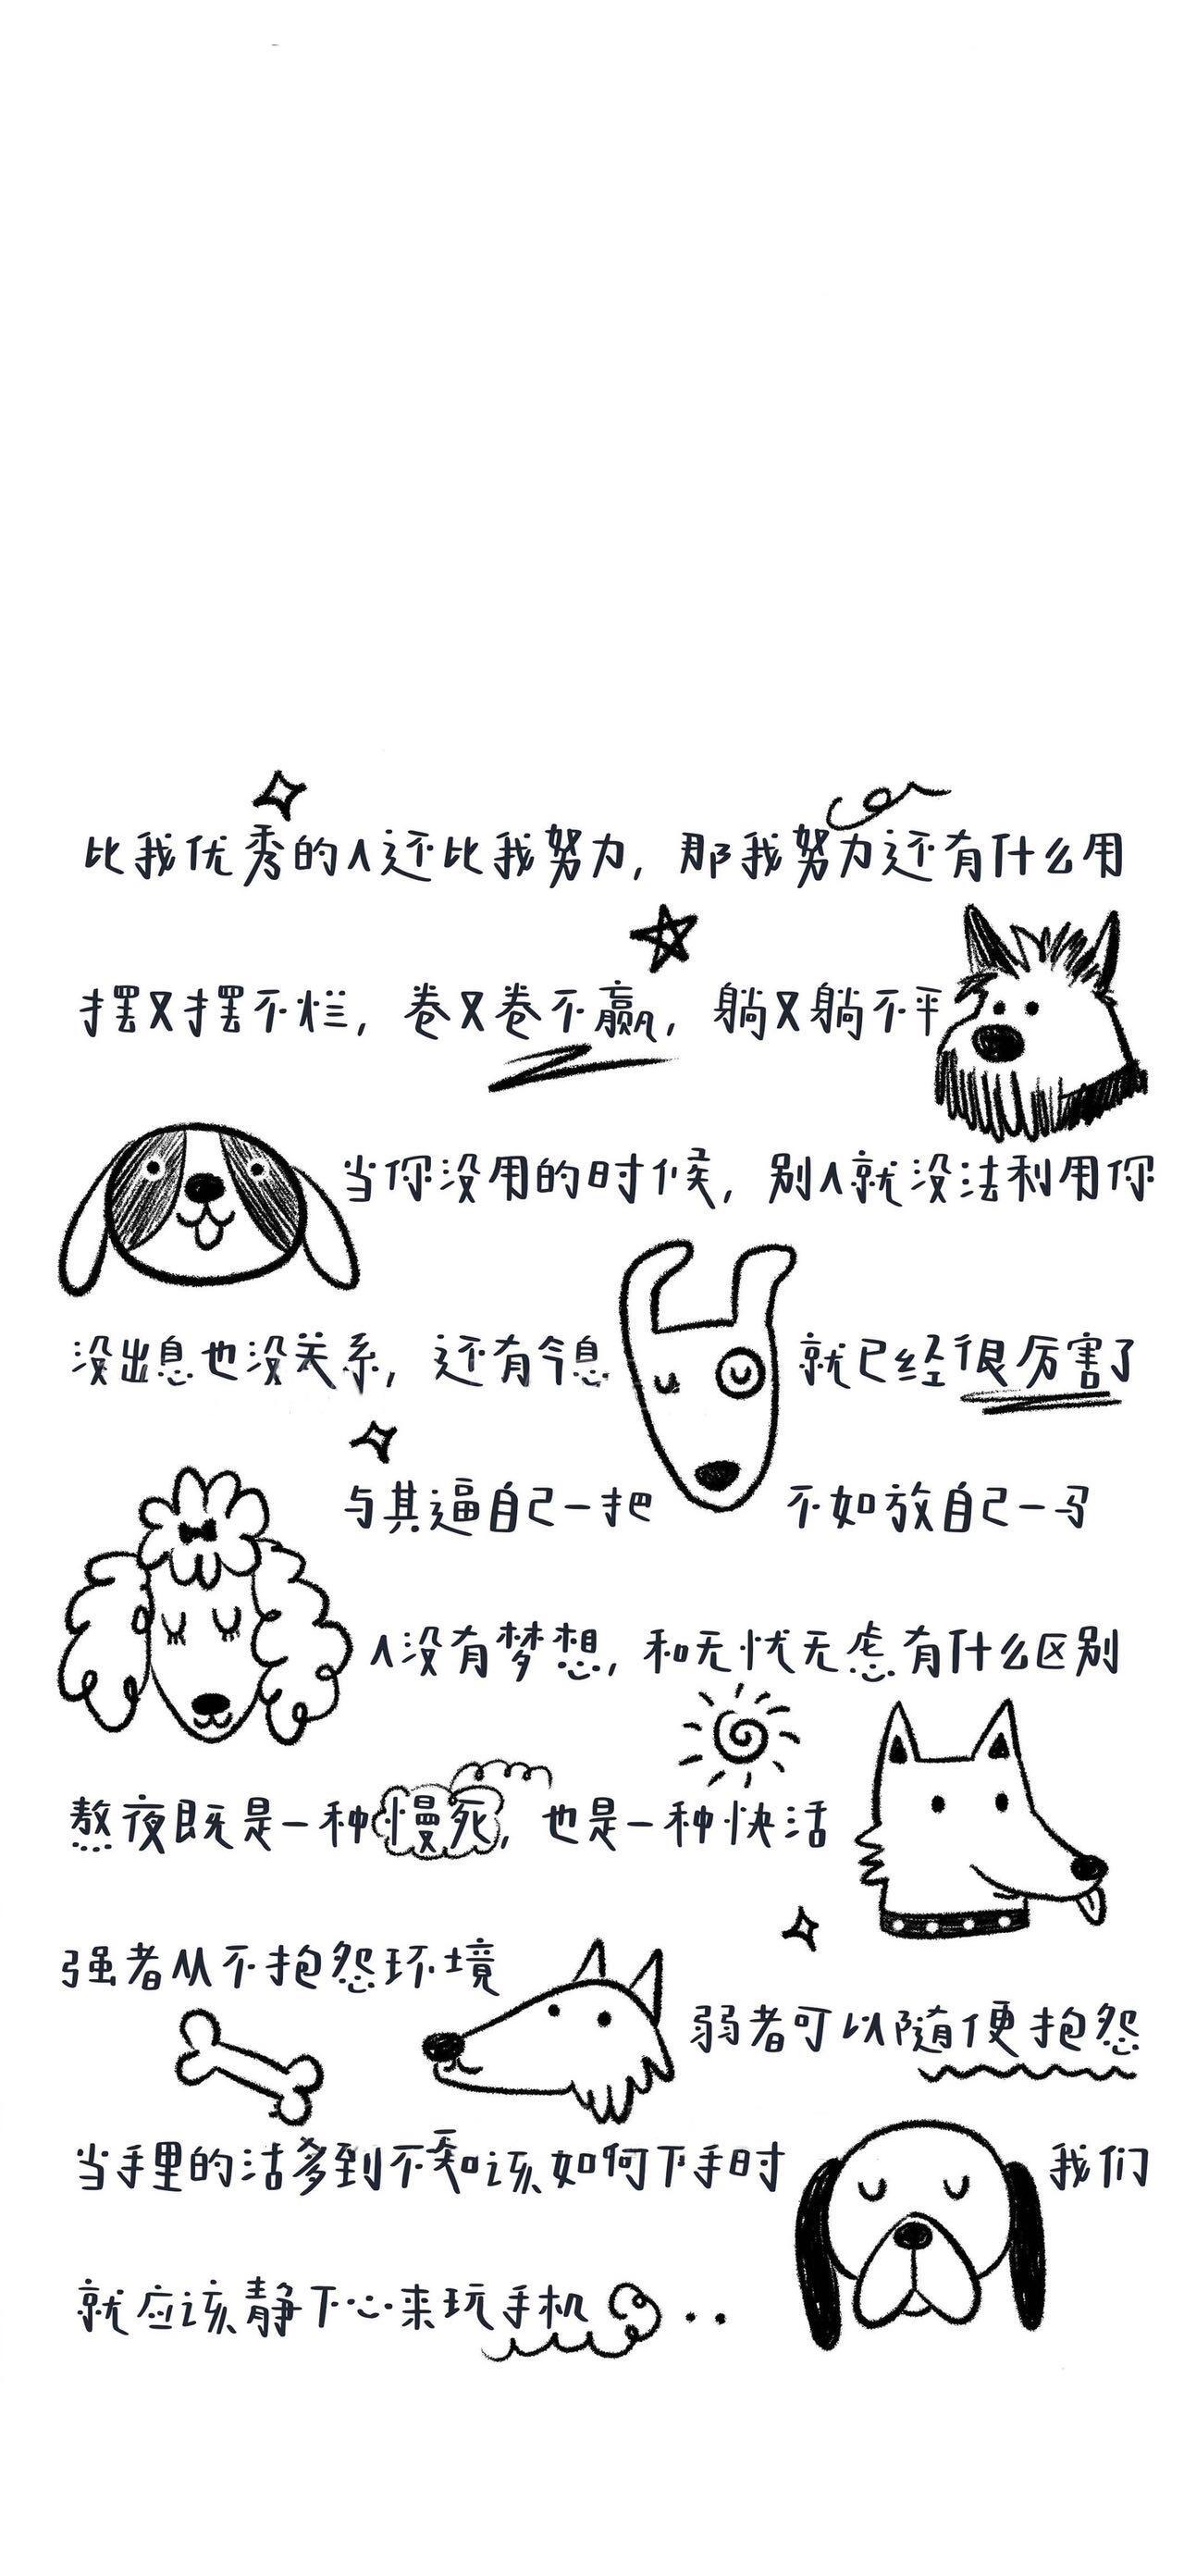 比我优秀的人还比我努力，那我努力还有什么用
摆又摆不烂，卷又卷不赢，躺又躺不平
当你没用的时候，别人就没法利用你
没出息也没关系，还有今息 就已经很厉害了
与其逼自己一把 不如放自己一马
人没有梦想，和无忧无虑有什么区别
熬夜既是一种慢死，也是一种快活
强者从不抱怨环境
弱者可以随便抱怨
当手里的活多到不知该如何下手时 我们
就应该静下心来玩手机